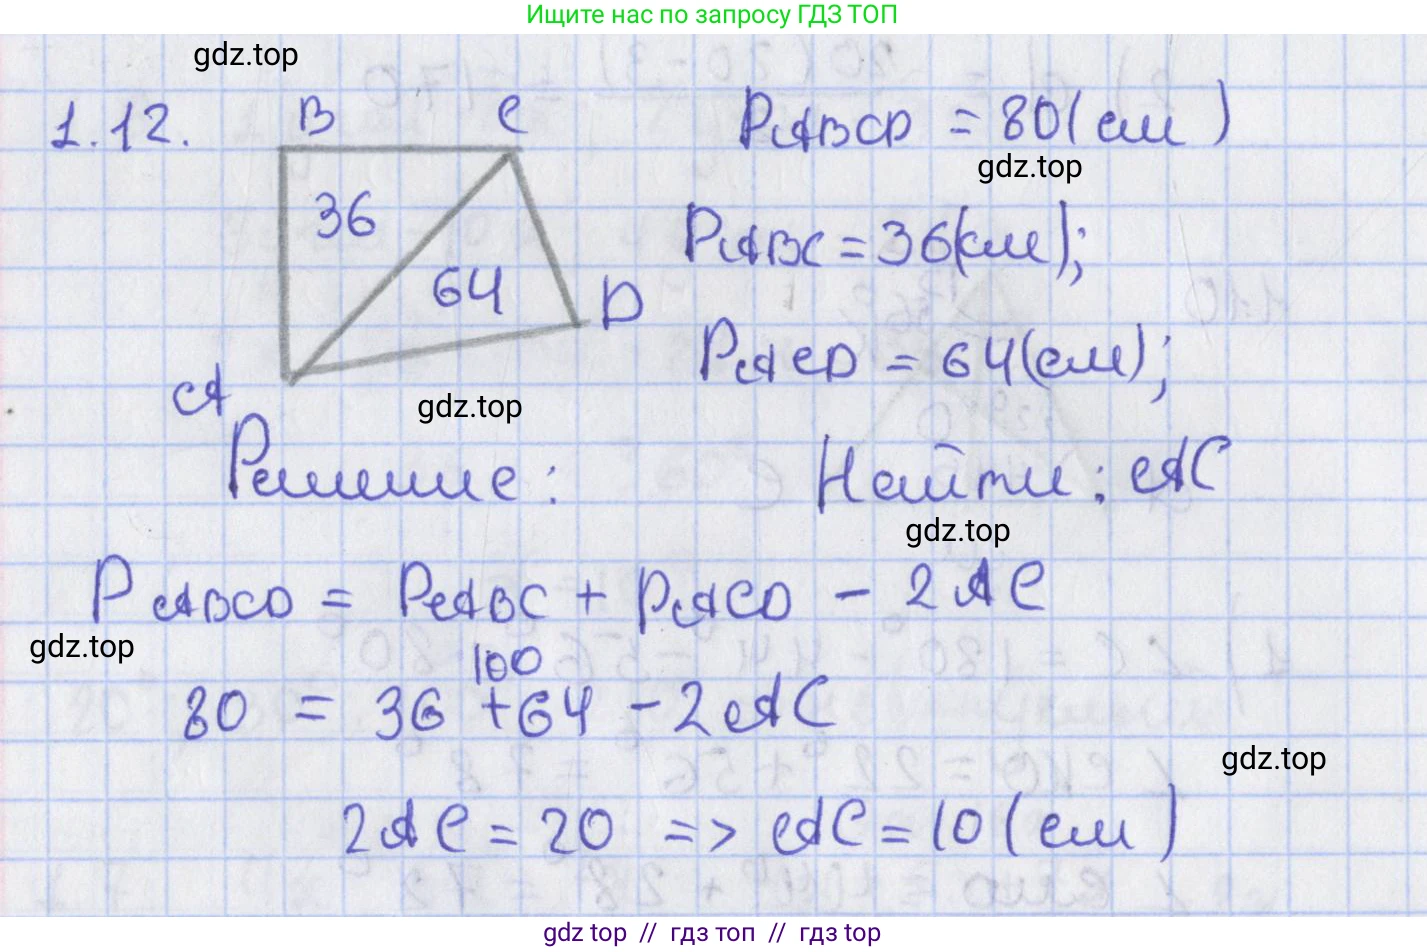 Ищите нас по запросу ГДЗ ТОП
gdz.top
1.12.
B C
PABCD = 80 (см)
gdz.top
36
PABC = 36(см);
64
D
PACD = 64(см);
A
gdz.top
Решение:
Найти: AC
gdz.top
PABCD = PABC + PACD - 2AC
gdz.top
100
80 = 36 + 64 - 2AC
gdz.top
2AC = 20 => AC = 10 (см)
gdz top // гдз топ // гдз top